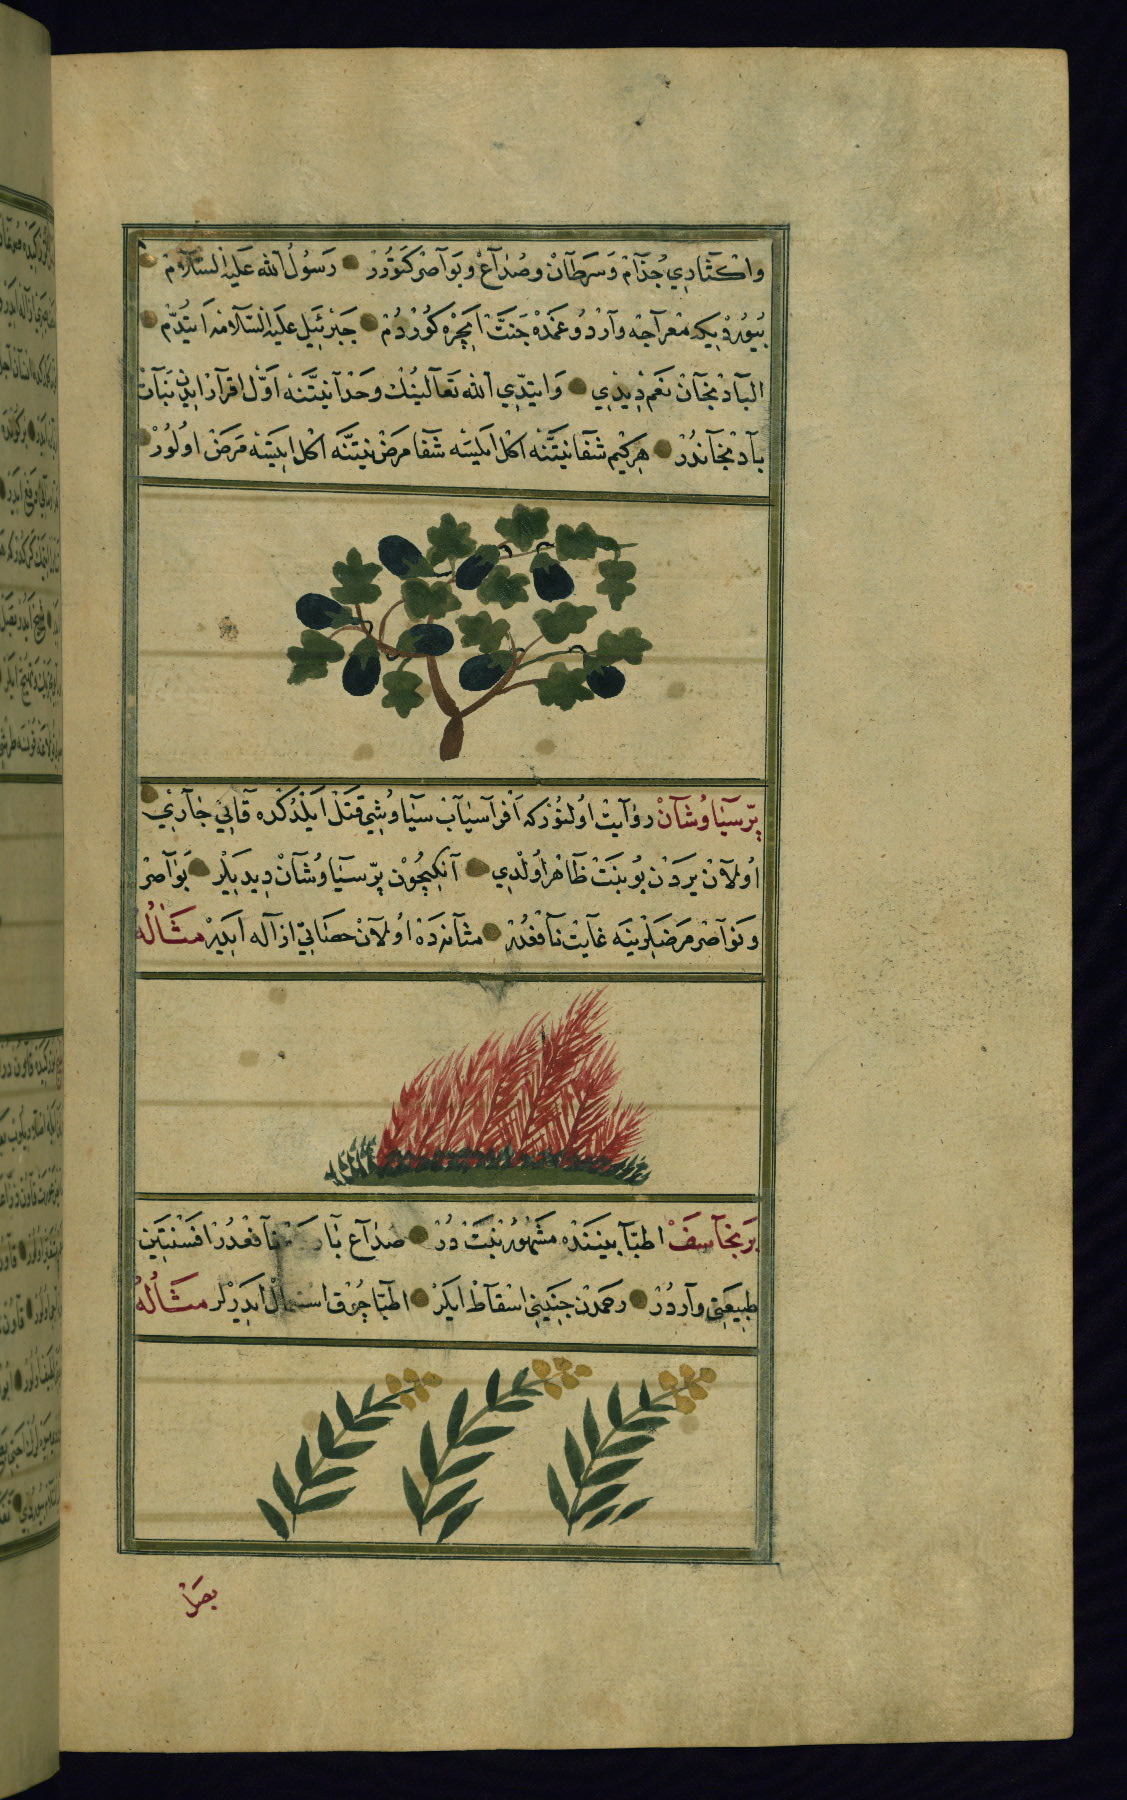 واكثاري جذام وسرطان وصداع وبواصر كتورر رسول الله عليه السلام
بيوردیكه معراجه واردوغمده جنت ايچره كوردم جبرئيل عليه السلامه ايتدم
البادنجان نعم ديدي وايتدي الله تعالينك وحدانيتنه اول اقرار ايدن نبات
بادنجاندر هركيم شفا نيتنه اكل ايليسه شفا مرض نيتنه اكل ايليسه مرض اولور
پرسياوشان روايت اولنور كه افراسياب سياوشي قتل ايلدكده قاني جاري
اولان يردن بو نبت ظاهر اولدي آنكيچون پرسياوشان ديديلر بواصر
ونواصر مرضلرينه غايت نافعدر مثانه ده اولان حصاتي ازاله ايدر مثاله
برنجاسف اطبا بيننده مشهور نبت در صداع نافعدر افسنتين
طبيعتي واردر رحمدن جنيني اسقاط ايلر اطبا چوق استعمال ايدرلر مثاله
بصل